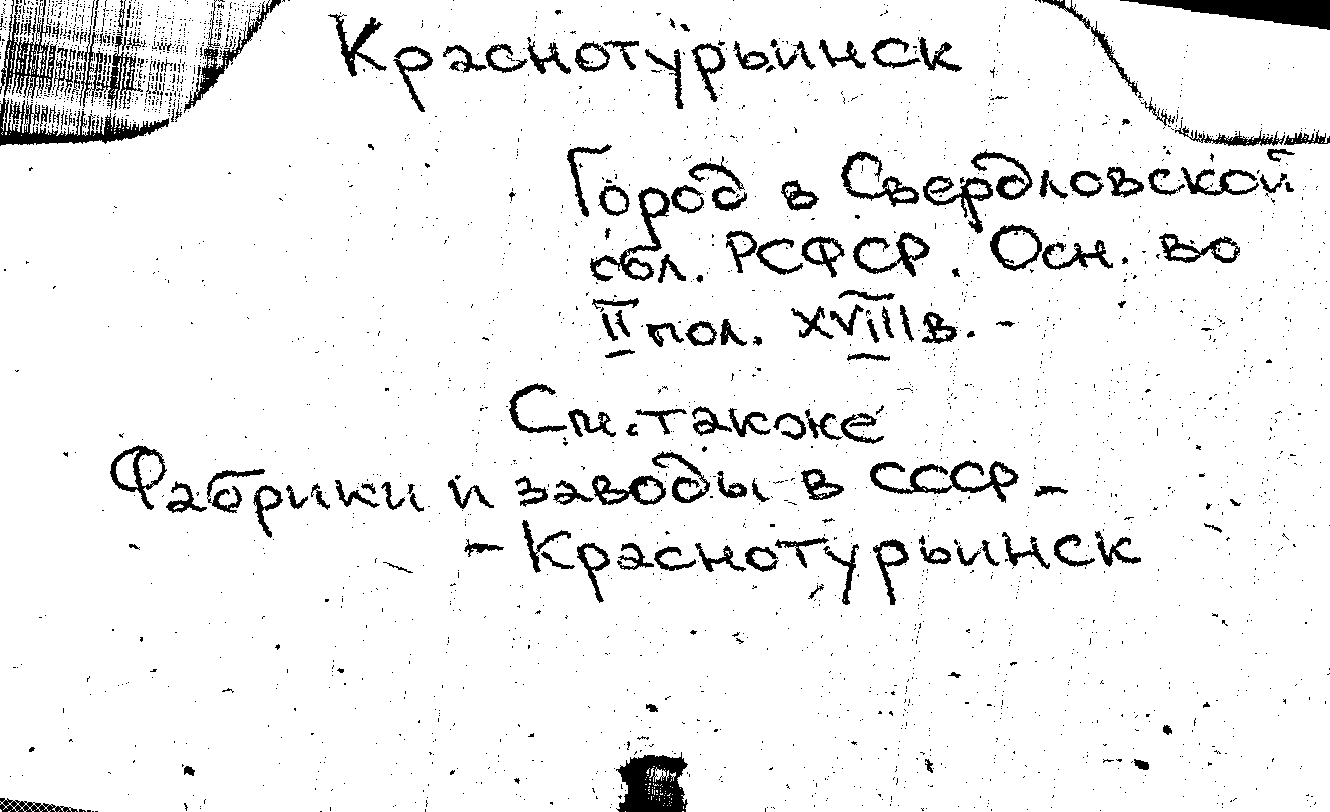 Краснотурьинск
Город в Свердловской
обл. РСФСР. Осн. во
II пол. XVIII в. -
См. также
Фабрики и заводы в СССР -
- Краснотурьинск